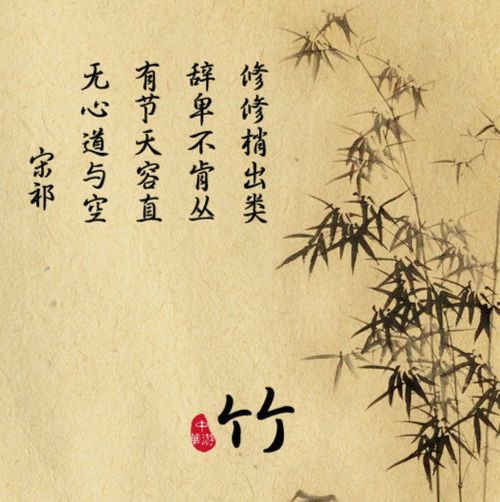 修修梢出类
辞卑不肯丛
有节天容直
无心道与空
宋祁
竹
中华
游